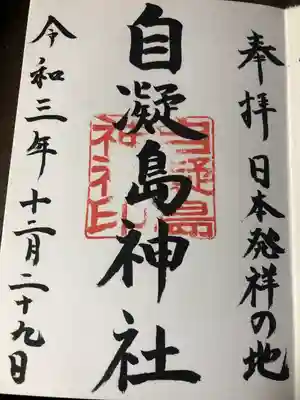 奉拝 日本発祥の地
自凝島神社
令和三年十二月二十九日